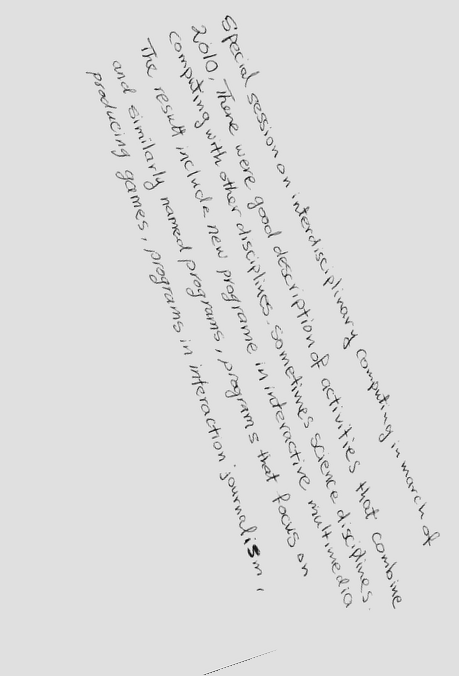 Special session on interdisciplinary computing in march of
2010, There were good description of activities that combine
computing with other disciplines. sometimes science disciplines.
The result include new programe in interactive multimedia
and similarly named programs, programs that focus on
producing games, programs in interaction journalism,